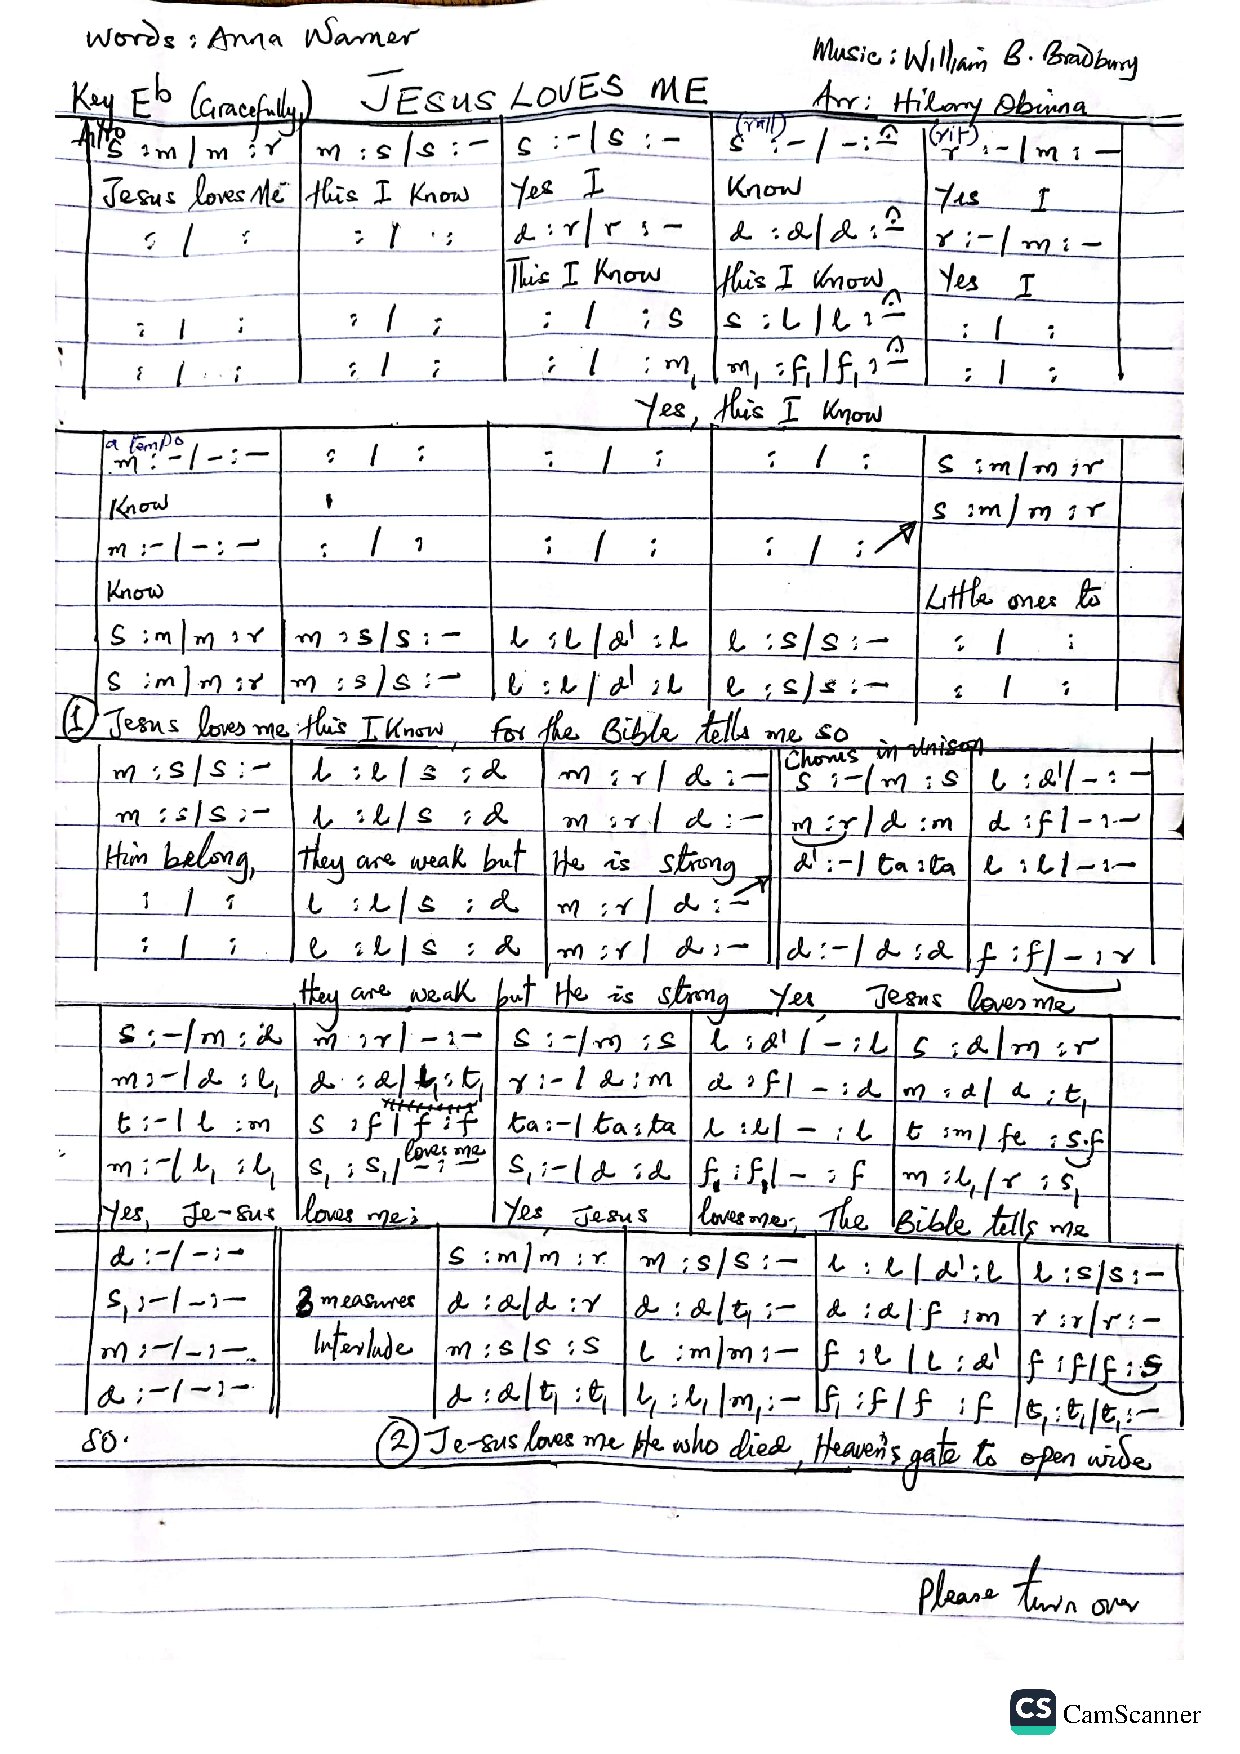 Words: Anna Warner
Music: William B. Bradbury
Key Eb (Gracefully) JESUS LOVES ME
Arr: Hilary Obinna
Alto (rall) (rit)
s :m/m :r | m :s/s :- | s :-/s :- | s :-/-:- | r :-/m :-
Jesus loves Me this I Know Yes I Know Yes I
: / : | : / : | d :r/r :- | d :d/d :- | r :-/m :-
This I Know this I Know Yes I
: / : | : / : | : / :s | s :l/l :- | : / :
: / : | : / : | : / :m₁ | m₁ :f₁/f₁ :- | : / :
Yes, this I Know
a tempo
m :-/-:- | : / : | : / : | : / : | s :m/m :r
Know s :m/m :r
m :-/-:- | : / : | : / : | : / :
Know Little ones to
s :m/m :r | m :s/s :- | l :l/d' :l | l :s/s :- | : / :
s :m/m :r | m :s/s :- | l :l/d' :l | l :s/s :- | : / :
① Jesus loves me this I Know, for the Bible tells me so
Chorus in unison
m :s/s :- | l :l/s :d | m :r/d :- || s :-/m :s | l :d'/-:-
m :s/s :- | l :l/s :d | m :r/d :- || m :r/d :m | d :f/-:-
Him belong, they are weak but He is strong d' :-/ta :ta | l :l/-:-
: / : | l :l/s :d | m :r/d :-
: / : | l :l/s :d | m :r/d :- || d :-/d :d | f :f/-:r
they are weak but He is strong Yes Jesus loves me
s :-/m :d | m :r/-:- | s :-/m :s | l :d'/-:l | s :d/m :r
m :-/d :l₁ | d :d/l₁ :t₁ | r :-/d :m | d :f/-:d | m :d/d :t₁
t :-/l :m | s :f/f :f | ta :-/ta :ta | l :l/-:l | t :m/fe :s.f
loves me
m :-/l₁ :l₁ | s₁ :s₁/-:- | s₁ :-/d :d | f₁ :f₁/-:f | m :l₁/r :s₁
Yes, Je-sus loves me; Yes Jesus loves me, The Bible tells me
d :-/-:- || | s :m/m :r | m :s/s :- | l :l/d' :l | l :s/s :-
s₁ :-/-:- || 3 measures | d :d/d :r | d :d/t₁ :- | d :d/f :m | r :r/r :-
m :-/-:- || Interlude | m :s/s :s | l :m/m :- | f :l/l :d' | f :f/f :s
d :-/-:- || | d :d/t₁ :t₁ | l₁ :l₁/m₁ :- | f₁ :f/f :f | t₁ :t₁/t₁ :-
so. ② Je-sus loves me He who died, Heaven's gate to open wide
Please turn over
CS CamScanner